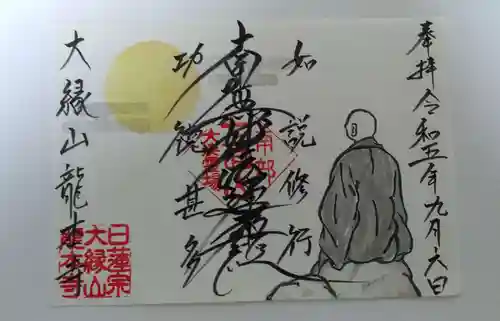 奉拝 令和五年九月六日
如説修行
南無妙法蓮華経
功徳甚多
大縁山 龍本寺
日蓮宗
大縁山
龍本寺